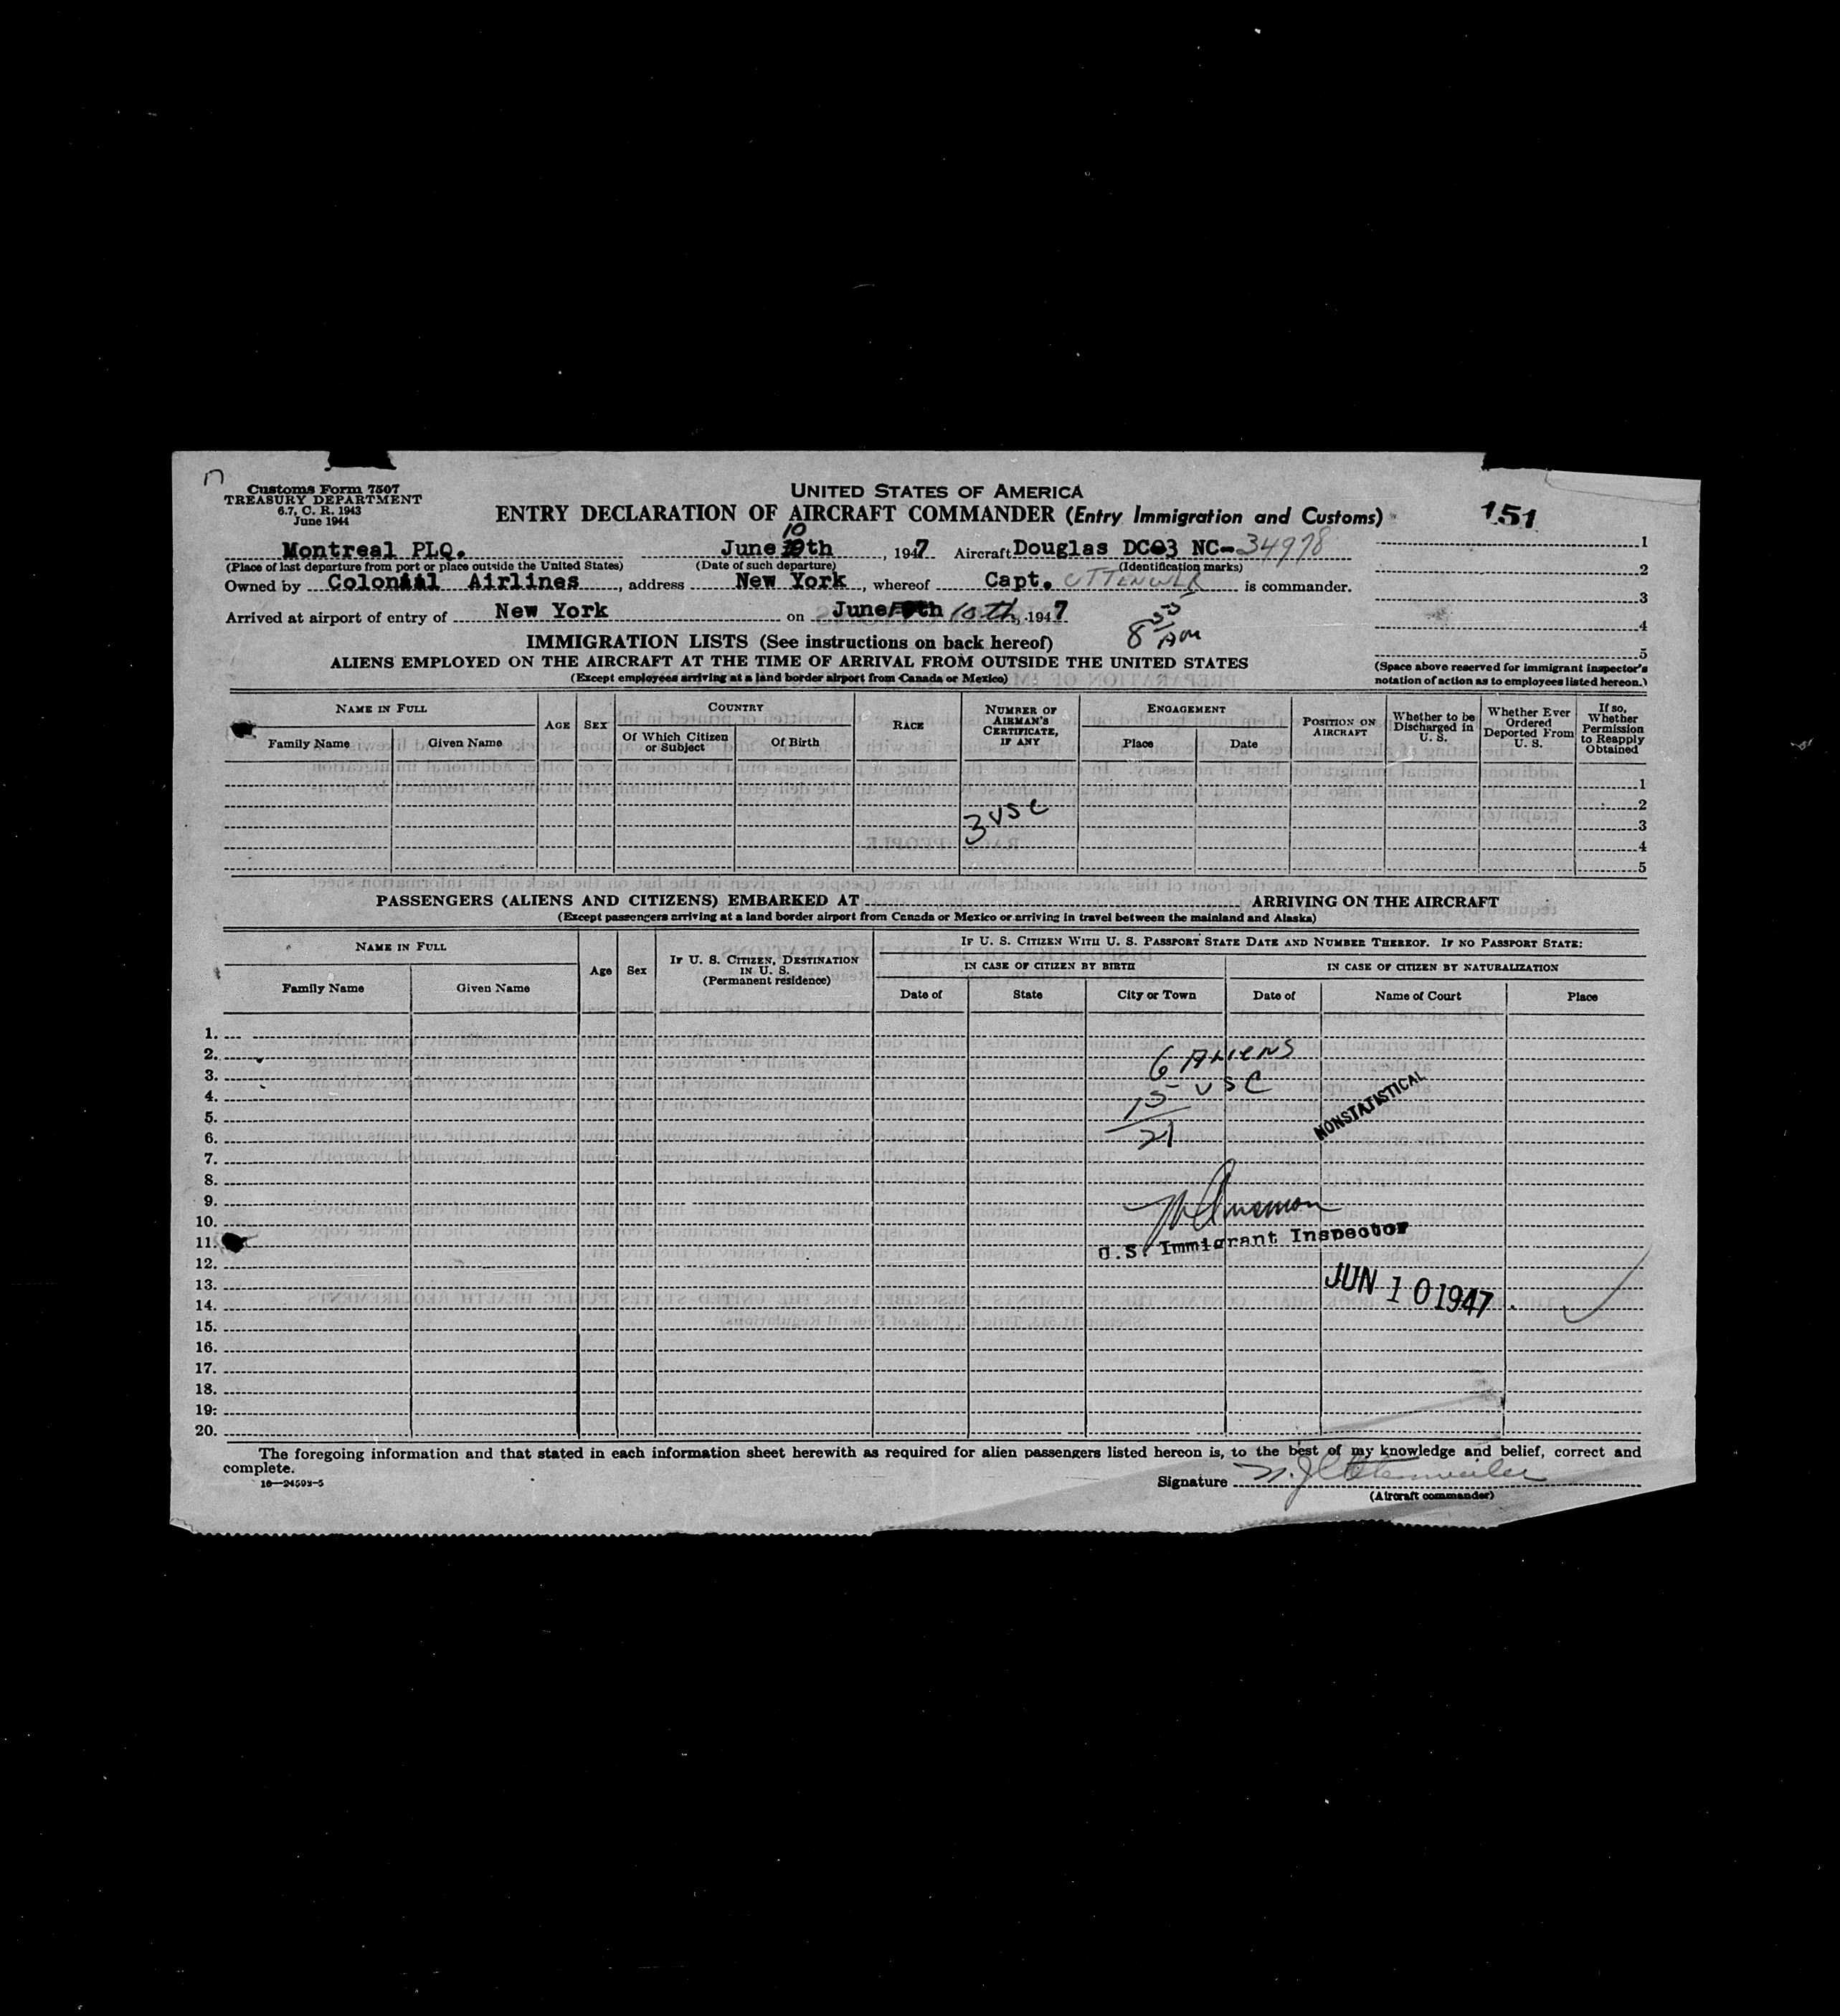 Customs Form 7507
TREASURY DEPARTMENT
6.7, C. R. 1943
June 1944
UNITED STATES OF AMERICA
ENTRY DECLARATION OF AIRCRAFT COMMANDER (Entry Immigration and Customs)
151
10
Montreal PLQ. June th, 1947 Aircraft Douglas DC-3 NC-34978
(Place of last departure from port or place outside the United States) (Date of such departure) (Identification marks)
Owned by Colonial Airlines, address New York, whereof Capt. is commander.
Arrived at airport of entry of New York on June 10th, 1947
8 55 AM
1
2
3
4
5
(Space above reserved for immigrant inspector's
notation of action as to employees listed hereon.)
IMMIGRATION LISTS (See instructions on back hereof)
ALIENS EMPLOYED ON THE AIRCRAFT AT THE TIME OF ARRIVAL FROM OUTSIDE THE UNITED STATES
(Except employees arriving at a land border airport from Canada or Mexico)
NAME IN FULL
Family Name
Given Name
AGE
SEX
COUNTRY
Of Which Citizen or Subject
Of Birth
RACE
NUMBER OF AIRMAN'S CERTIFICATE, IF ANY
ENGAGEMENT
Place
Date
POSITION ON AIRCRAFT
Whether to be Discharged in U. S.
Whether Ever Ordered Deported From U. S.
If so, Whether Permission to Reapply Obtained
1
2
3 USC
3
4
5
PASSENGERS (ALIENS AND CITIZENS) EMBARKED AT ARRIVING ON THE AIRCRAFT
(Except passengers arriving at a land border airport from Canada or Mexico or arriving in travel between the mainland and Alaska)
NAME IN FULL
Family Name
Given Name
Age
Sex
IF U. S. CITIZEN, DESTINATION IN U. S.
(Permanent residence)
IF U. S. CITIZEN WITH U. S. PASSPORT STATE DATE AND NUMBER THEREOF. IF NO PASSPORT STATE:
IN CASE OF CITIZEN BY BIRTH
IN CASE OF CITIZEN BY NATURALIZATION
Date of
State
City or Town
Date of
Name of Court
Place
1.
2.
6 ALIENS
3.
4.
15 USC
NONSTATISTICAL
5.
6.
21
7.
8.
9.
10.
11.
U.S. Immigrant Inspector
12.
13.
JUN 10 1947
14.
15.
16.
17.
18.
19.
20.
The foregoing information and that stated in each information sheet herewith as required for alien passengers listed hereon is, to the best of my knowledge and belief, correct and
complete.
16—24593-5
Signature
(Aircraft commander)